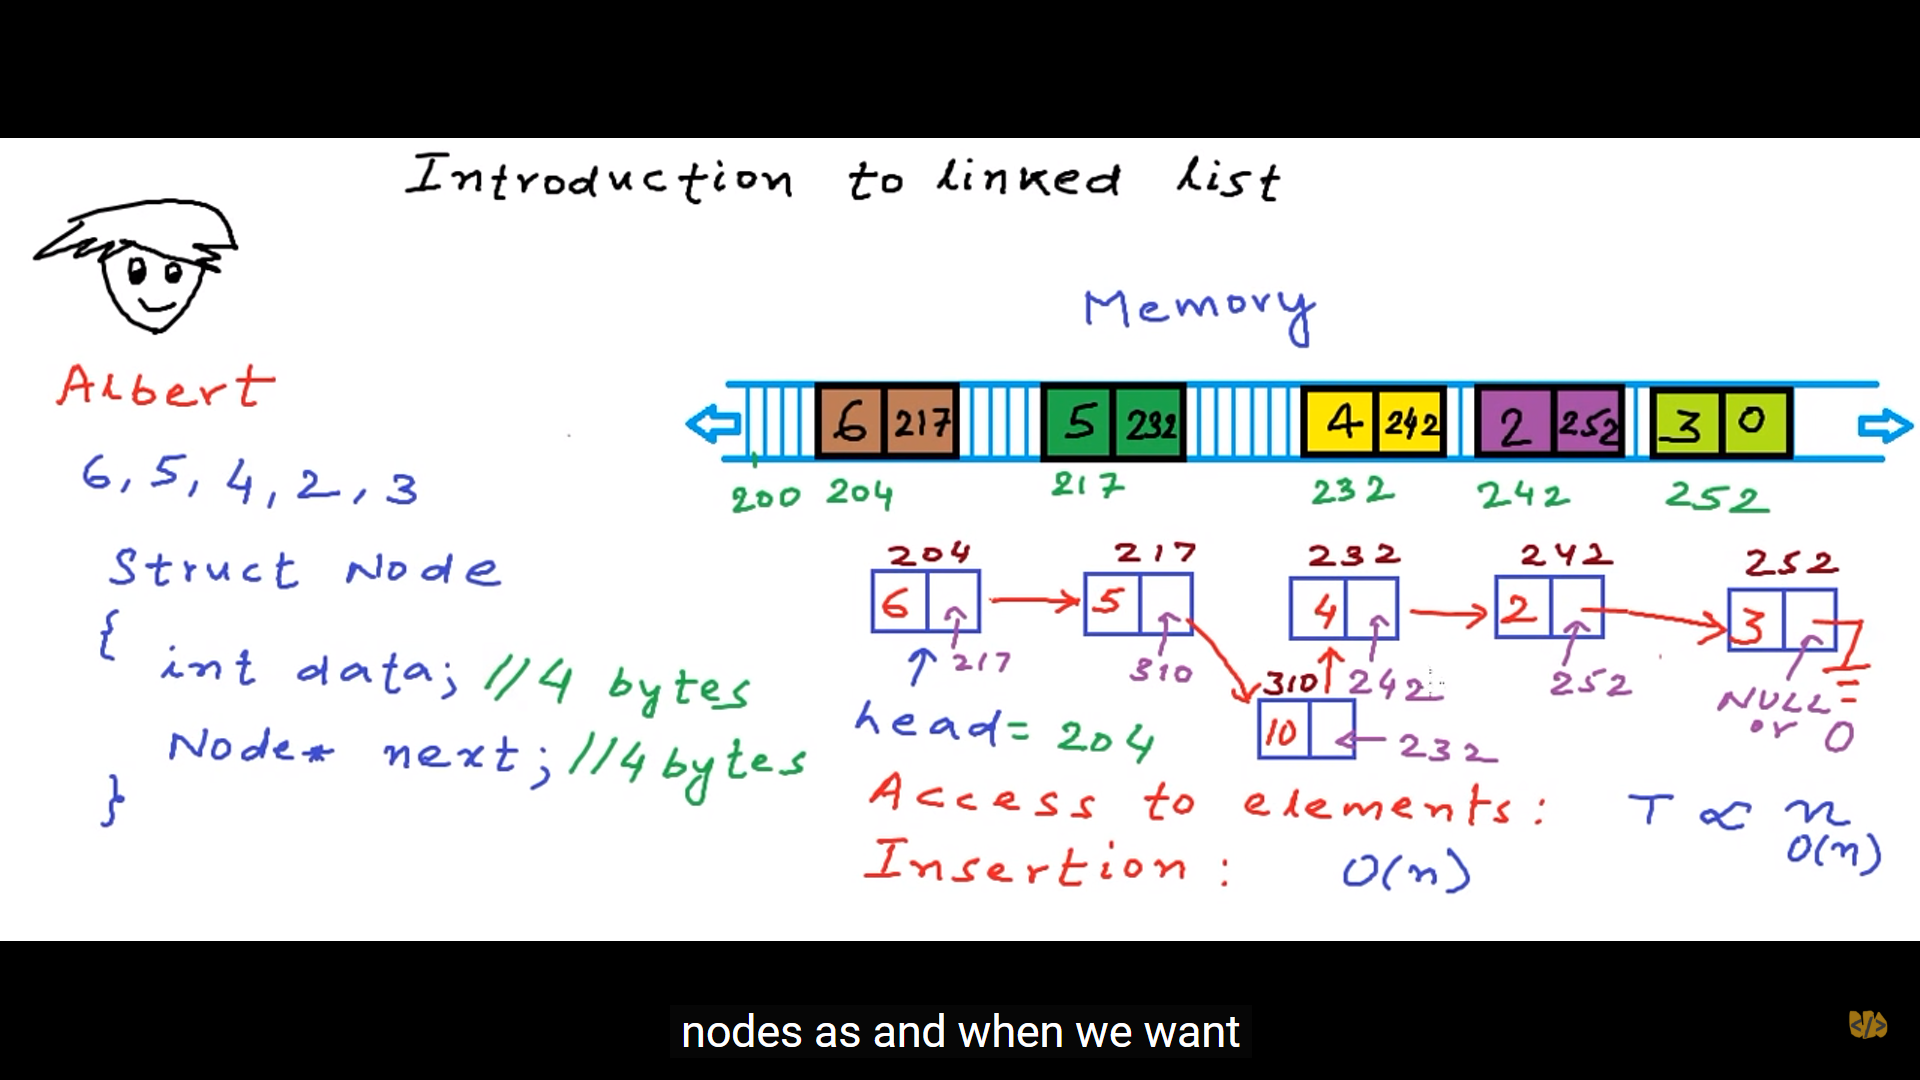 Introduction to linked list
Albert
6, 5, 4, 2, 3
Struct Node
{
int data; //4 bytes
Node* next; //4 bytes
}
Memory
6 217 5 232 4 242 2 252 3 0
200 204 217 232 242 252
204 217 232 242 252
6 5 4 2 3
217 310 310 242 252 NULL or 0
head = 204
10 232
Access to elements: T ∝ n
O(n)
Insertion: O(n)
nodes as and when we want